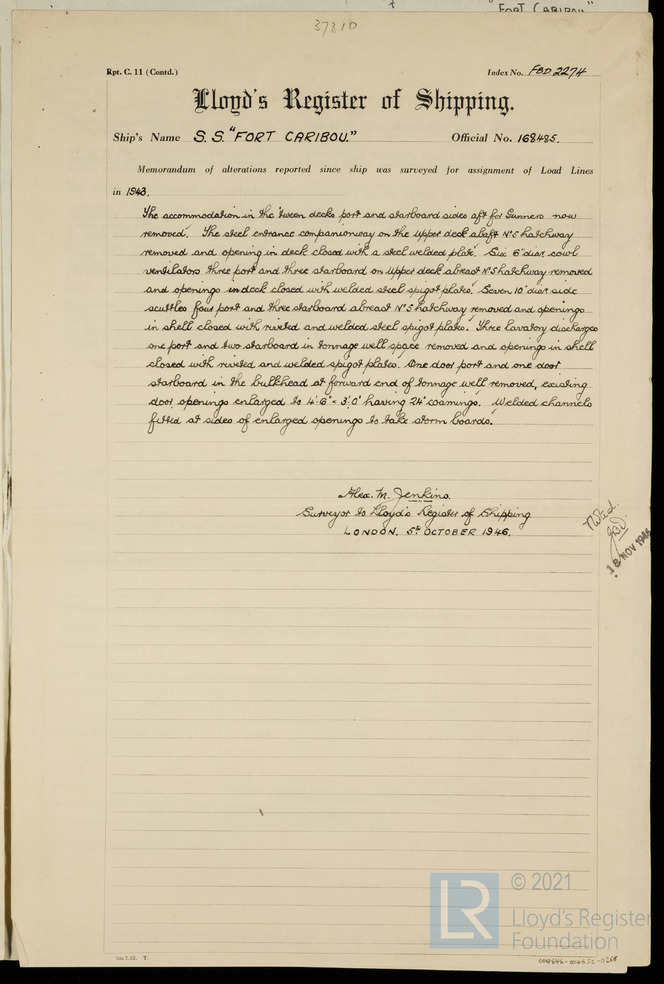 "FORT CARIBOU"
37310
Rpt. C. 11 (Contd.)
Index No. FBD 2274
Lloyd's Register of Shipping.
Ship's Name S.S. "FORT CARIBOU."
Official No. 168485.
Memorandum of alterations reported since ship was surveyed for assignment of Load Lines
in 1943.
The accommodation in the 'tween decks port and starboard sides aft for Gunners now
removed. The steel entrance companionway on the upper deck abaft Nº5 hatchway
removed and opening in deck closed with a steel welded plate. Six 6" diar cowl
ventilators three port and three starboard on upper deck abreast Nº5 hatchway removed
and openings in deck closed with welded steel spigot plates. Seven 10" diar side
scuttles four port and three starboard abreast Nº5 hatchway removed and openings
in shell closed with riveted and welded steel spigot plates. Three lavatory discharges
one port and two starboard in tonnage well space removed and openings in shell
closed with riveted and welded spigot plates. One door port and one door
starboard in the bulkhead at forward end of tonnage well removed, existing
door openings enlarged to 4'6" × 3'0" having 24" coamings. Welded channels
fitted at sides of enlarged openings to take storm boards.
Alex. M. Jenkins.
Surveyor to Lloyd's Register of Shipping
LONDON. 5th OCTOBER 1946.
Noted.
18 NOV 1946
© 2021
LR
Lloyd's Register
Foundation
T.
004646-004652-0268